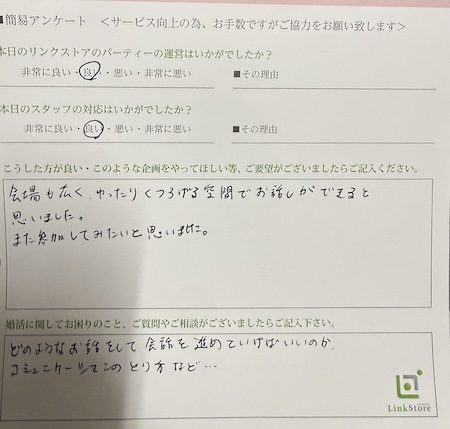 ■簡易アンケート ＜サービス向上の為、お手数ですがご協力をお願い致します＞
本日のリンクストアのパーティーの運営はいかがでしたか？
非常に良い・良い・悪い・非常に悪い ■その理由
本日のスタッフの対応はいかがでしたか？
非常に良い・良い・悪い・非常に悪い ■その理由
こうした方が良い・このような企画をやってほしい等、ご要望がございましたらご記入ください。
会場も広く、ゆったりくつろげる空間でお話しができると
思いました。
また参加してみたいと思いました。
婚活に関してお困りのこと、ご質問やご相談がございましたらご記入下さい。
どのようなお話をして会話を進めていけばいいのか、
コミュニケーションのとり方など…
LinkStore